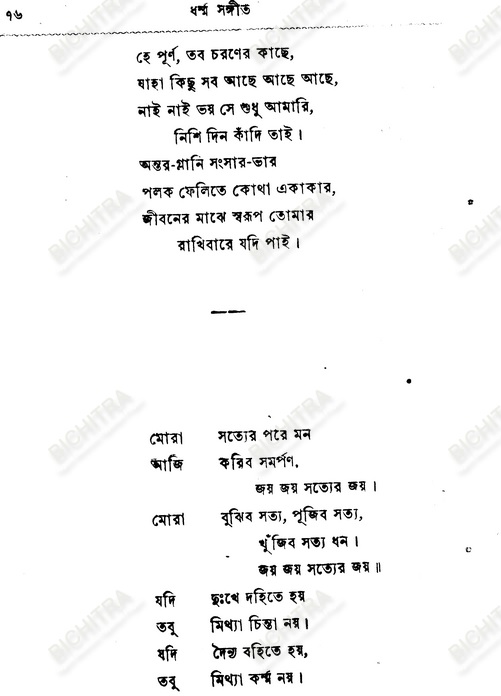 ৭৬ ধর্ম্ম সঙ্গীত
হে পূর্ণ, তব চরণের কাছে,
যাহা কিছু সব আছে আছে আছে,
নাই নাই ভয় সে শুধু আমারি,
নিশি দিন কাঁদি তাই।
অন্তর-গ্লানি সংসার-ভার
পলক ফেলিতে কোথা একাকার,
জীবনের মাঝে স্বরূপ তোমার
রাখিবারে যদি পাই।
মোরা সত্যের পরে মন
আজি করিব সমর্পণ,
জয় জয় সত্যের জয়।
মোরা বুঝিব সত্য, পূজিব সত্য,
খুঁজিব সত্য ধন।
জয় জয় সত্যের জয়॥
যদি দুঃখে দহিতে হয়
তবু মিথ্যা চিন্তা নয়।
যদি দৈন্য বহিতে হয়,
তবু মিথ্যা কর্ম্ম নয়।
BICHITRA
BICHITRA
BICHITRA
BICHITRA
BICHITRA
BICHITRA
BICHITRA
BICHITRA
BICHITRA
BICHITRA
BICHITRA
BICHITRA